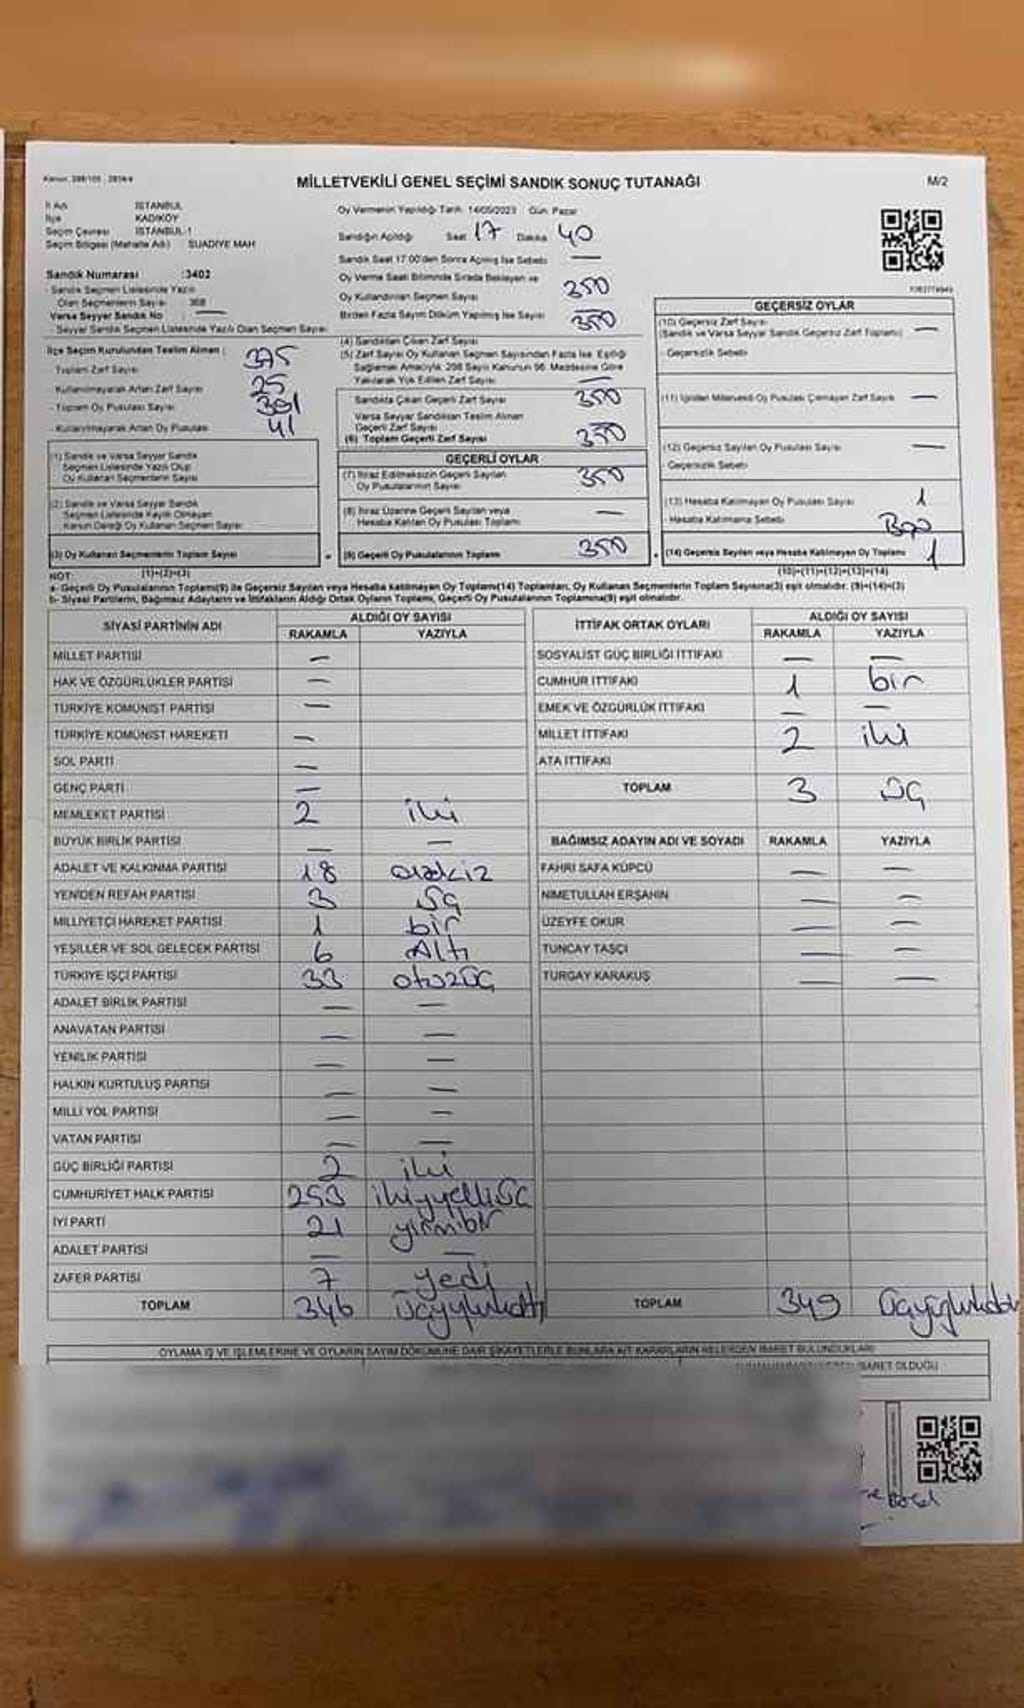 Kanun: 298/105 - 2839/4
MİLLETVEKİLİ GENEL SEÇİMİ SANDIK SONUÇ TUTANAĞI
M/2
İl Adı İSTANBUL
İlçe KADIKÖY
Seçim Çevresi İSTANBUL-1
Seçim Bölgesi (Mahalle Adı) SUADİYE MAH
Sandık Numarası :3402
- Sandık Seçmen Listesinde Yazılı
Olan Seçmenlerin Sayısı 368
Varsa Seyyar Sandık No —
- Seyyar Sandık Seçmen Listesinde Yazılı Olan Seçmen Sayısı
İlçe Seçim Kurulundan Teslim Alınan :
- Toplam Zarf Sayısı 375
- Kullanılmayarak Artan Zarf Sayısı 25
- Toplam Oy Pusulası Sayısı 391
- Kullanılmayarak Artan Oy Pusulası 41
(1) Sandık ve Varsa Seyyar Sandık
Seçmen Listesinde Yazılı Olup
Oy Kullanan Seçmenlerin Sayısı
(2) Sandık ve Varsa Seyyar Sandık
Seçmen Listesinde Kayıtlı Olmayan
Kanun Gereği Oy Kullanan Seçmen Sayısı
(3) Oy Kullanan Seçmenlerin Toplam Sayısı
(1)+(2)=(3)
Oy Vermenin Yapıldığı Tarih: 14/05/2023 Gün: Pazar
Sandığın Açıldığı Saat 17 Dakika 40
Sandık Saat 17.00'den Sonra Açılmış İse Sebebi —
Oy Verme Saati Bitiminde Sırada Bekleyen ve
Oy Kullandırılan Seçmen Sayısı 350
Birden Fazla Sayım Döküm Yapılmış İse Sayısı 350
(4) Sandıktan Çıkan Zarf Sayısı
(5) Zarf Sayısı Oy Kullanan Seçmen Sayısından Fazla İse, Eşitliği
Sağlamak Amacıyla, 298 Sayılı Kanunun 98. Maddesine Göre
Yakılarak Yok Edilen Zarf Sayısı —
Sandıkta Çıkan Geçerli Zarf Sayısı 350
Varsa Seyyar Sandıktan Teslim Alınan
Geçerli Zarf Sayısı
(6) Toplam Geçerli Zarf Sayısı 350
GEÇERLİ OYLAR
(7) İtiraz Edilmeksizin Geçerli Sayılan
Oy Pusulalarının Sayısı 350
(8) İtiraz Üzerine Geçerli Sayılan veya
Hesaba Katılan Oy Pusulası Toplamı —
(9) Geçerli Oy Pusulalarının Toplamı 350
GEÇERSİZ OYLAR
(10) Geçersiz Zarf Sayısı
(Sandık ve Varsa Seyyar Sandık Geçersiz Zarf Toplamı) —
- Geçersizlik Sebebi
(11) İçinden Milletvekili Oy Pusulası Çıkmayan Zarf Sayısı —
(12) Geçersiz Sayılan Oy Pusulası Sayısı —
- Geçersizlik Sebebi
(13) Hesaba Katılmayan Oy Pusulası Sayısı 1
- Hesaba Katılmama Sebebi Boş
(14) Geçersiz Sayılan veya Hesaba Katılmayan Oy Toplamı 1
(10)+(11)+(12)+(13)=(14)
NOT:
a- Geçerli Oy Pusulaları Toplamı(9) ile Geçersiz Sayılan veya Hesaba katılmayan Oy Toplamı(14) Toplamları, Oy Kullanan Seçmenlerin Toplam Sayısına(3) eşit olmalıdır. (9)+(14)=(3)
b- Siyasi Partilerin, Bağımsız Adayların ve İttifakların Aldığı Ortak Oyların Toplamı, Geçerli Oy Pusulalarının Toplamına(9) eşit olmalıdır.
SİYASİ PARTİNİN ADI ALDIĞI OY SAYISI
RAKAMLA YAZIYLA
MİLLET PARTİSİ —
HAK VE ÖZGÜRLÜKLER PARTİSİ —
TÜRKİYE KOMÜNİST PARTİSİ —
TÜRKİYE KOMÜNİST HAREKETİ —
SOL PARTİ —
GENÇ PARTİ —
MEMLEKET PARTİSİ 2 iki
BÜYÜK BİRLİK PARTİSİ — —
ADALET VE KALKINMA PARTİSİ 18 onsekiz
YENİDEN REFAH PARTİSİ 3 üç
MİLLİYETÇİ HAREKET PARTİSİ 1 bir
YEŞİLLER VE SOL GELECEK PARTİSİ 6 Altı
TÜRKİYE İŞÇİ PARTİSİ 33 otuzüç
ADALET BİRLİK PARTİSİ — —
ANAVATAN PARTİSİ — —
YENİLİK PARTİSİ — —
HALKIN KURTULUŞ PARTİSİ — —
MİLLİ YOL PARTİSİ — —
VATAN PARTİSİ — —
GÜÇ BİRLİĞİ PARTİSİ 2 iki
CUMHURİYET HALK PARTİSİ 253 ikiyüzelliüç
İYİ PARTİ 21 yirmibir
ADALET PARTİSİ — —
ZAFER PARTİSİ 7 yedi
TOPLAM 346 üçyüzkırkaltı
İTTİFAK ORTAK OYLARI ALDIĞI OY SAYISI
RAKAMLA YAZIYLA
SOSYALİST GÜÇ BİRLİĞİ İTTİFAKI — —
CUMHUR İTTİFAKI 1 bir
EMEK VE ÖZGÜRLÜK İTTİFAKI — —
MİLLET İTTİFAKI 2 iki
ATA İTTİFAKI
TOPLAM 3 üç
BAĞIMSIZ ADAYIN ADI VE SOYADI RAKAMLA YAZIYLA
FAHRİ SAFA KÜPCÜ — —
NİMETULLAH ERŞAHİN — —
ÜZEYFE OKUR — —
TUNCAY TAŞÇI — —
TURGAY KARAKUŞ — —
TOPLAM 349
OYLAMA İŞ VE İŞLEMLERİNE VE OYLARIN SAYIM DÖKÜMÜNE DAİR ŞİKAYETLERLE BUNLARA AİT KARARLARIN NELERDEN İBARET BULUNDUKLARI
İBARET OLDUĞU